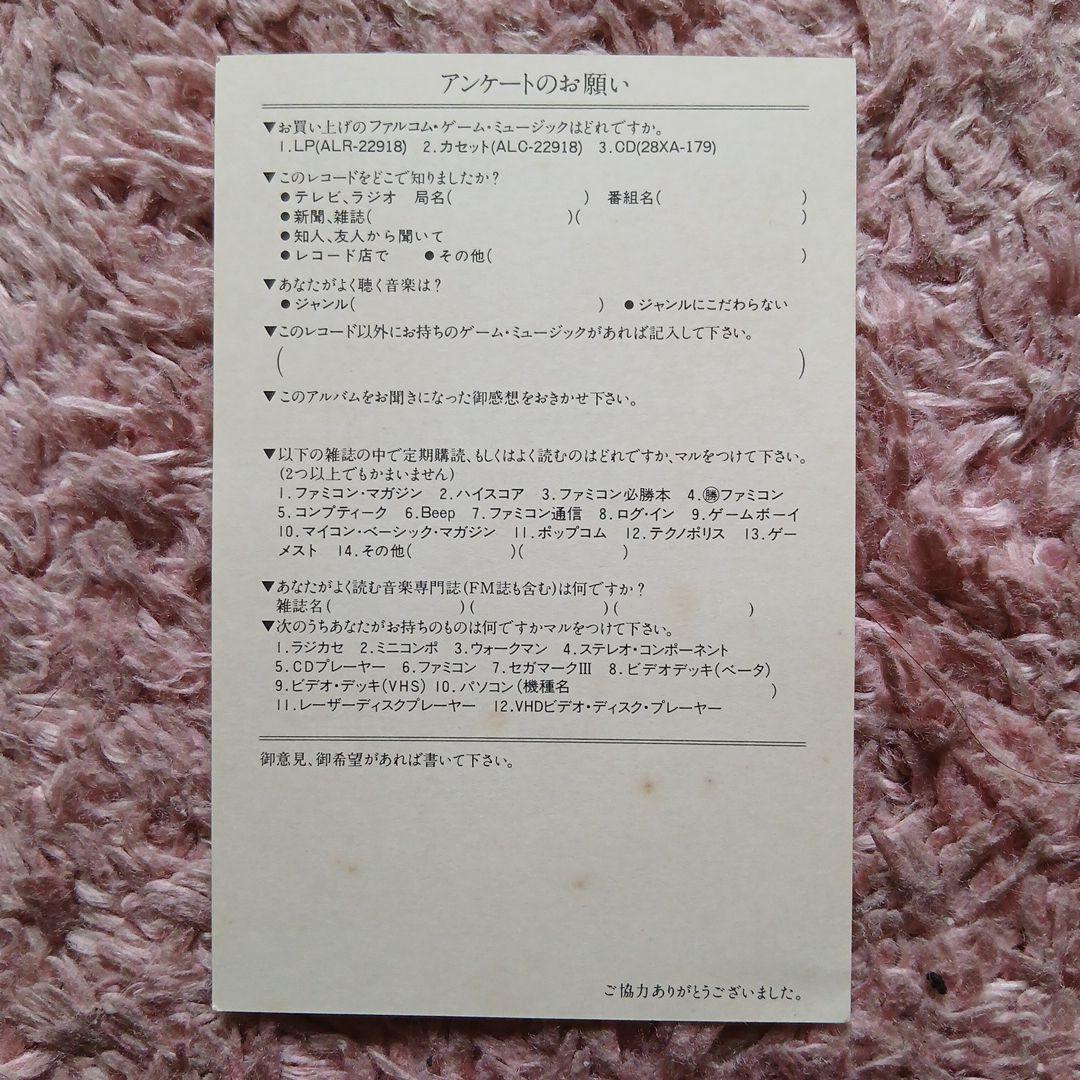 アンケートのお願い
▼お買い上げのファルコム・ゲーム・ミュージックはどれですか。
1.LP(ALR-22918) 2.カセット(ALC-22918) 3.CD(28XA-179)
▼このレコードをどこで知りましたか?
●テレビ、ラジオ 局名( ) 番組名( )
●新聞、雑誌( )( )
●知人、友人から聞いて
●レコード店で ●その他( )
▼あなたがよく聴く音楽は?
●ジャンル( ) ●ジャンルにこだわらない
▼このレコード以外にお持ちのゲーム・ミュージックがあれば記入して下さい。
( )
▼このアルバムをお聞きになった御感想をおきかせ下さい。
▼以下の雑誌の中で定期購読、もしくはよく読むのはどれですか、マルをつけて下さい。
(2つ以上でもかまいません)
1.ファミコン・マガジン 2.ハイスコア 3.ファミコン必勝本 4.㊝ファミコン
5.コンプティーク 6.Beep 7.ファミコン通信 8.ログ・イン 9.ゲームボーイ
10.マイコン・ベーシック・マガジン 11.ポップコム 12.テクノポリス 13.ゲー
メスト 14.その他( )( )
▼あなたがよく読む音楽専門誌(FM誌も含む)は何ですか?
雑誌名( )( )( )
▼次のうちあなたがお持ちのものは何ですかマルをつけて下さい。
1.ラジカセ 2.ミニコンポ 3.ウォークマン 4.ステレオ・コンポーネント
5.CDプレーヤー 6.ファミコン 7.セガマークIII 8.ビデオデッキ(ベータ)
9.ビデオ・デッキ(VHS) 10.パソコン(機種名 )
11.レーザーディスクプレーヤー 12.VHDビデオ・ディスク・プレーヤー
御意見、御希望があれば書いて下さい。
ご協力ありがとうございました。